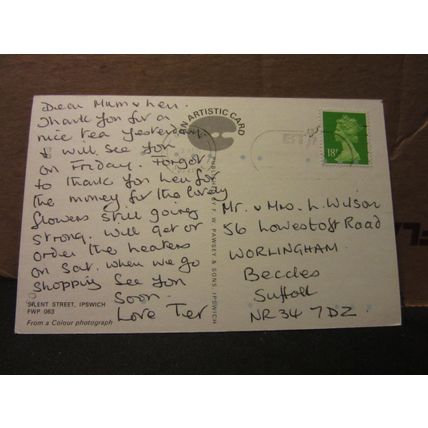 Dear Mum & Len.
Thank you for a
nice tea yesterday.
I will see you
on Friday. Forgot
to thank you Len for
the money for the lovely
flowers still going
strong. Will get or
order the heaters
on Sat. when we go
shopping See you
soon.
Love Ter
SILENT STREET, IPSWICH
FWP 963
From a Colour photograph
AN ARTISTIC CARD
PUBLISHED BY F. W. PAWSEY & SONS, IPSWICH
18P
Mr. & Mrs. L. Wilson
56 Lowestoft Road
WORLINGHAM
Beccles
Suffolk
NR34 7DZ